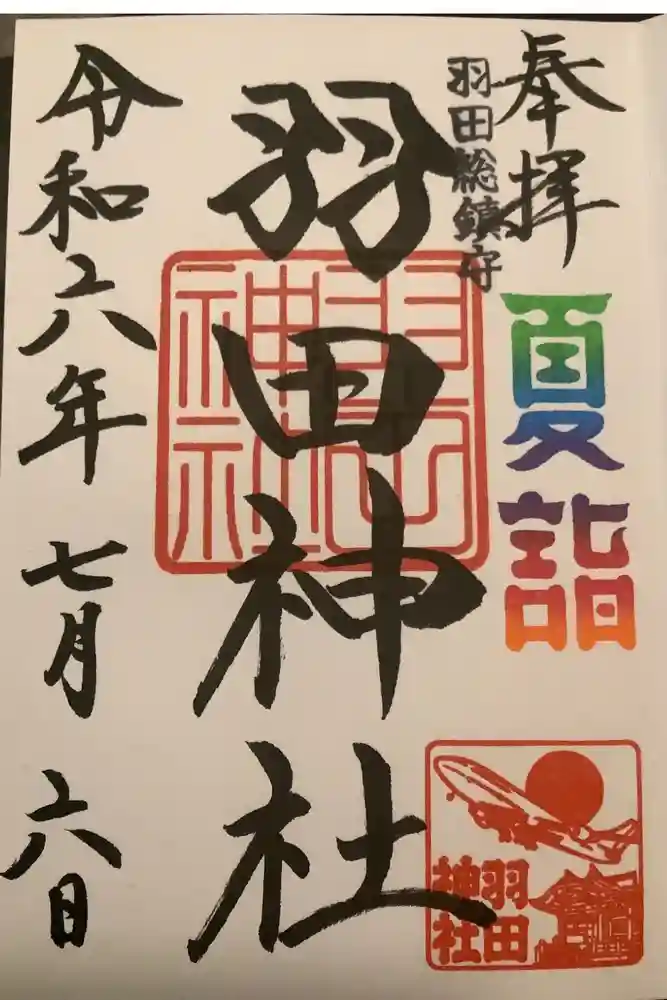 奉拝
羽田総鎮守
夏詣
羽田神社
羽田
神社
羽田
神社
令和六年七月六日